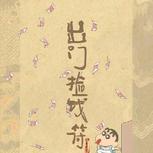 出门捡钱符